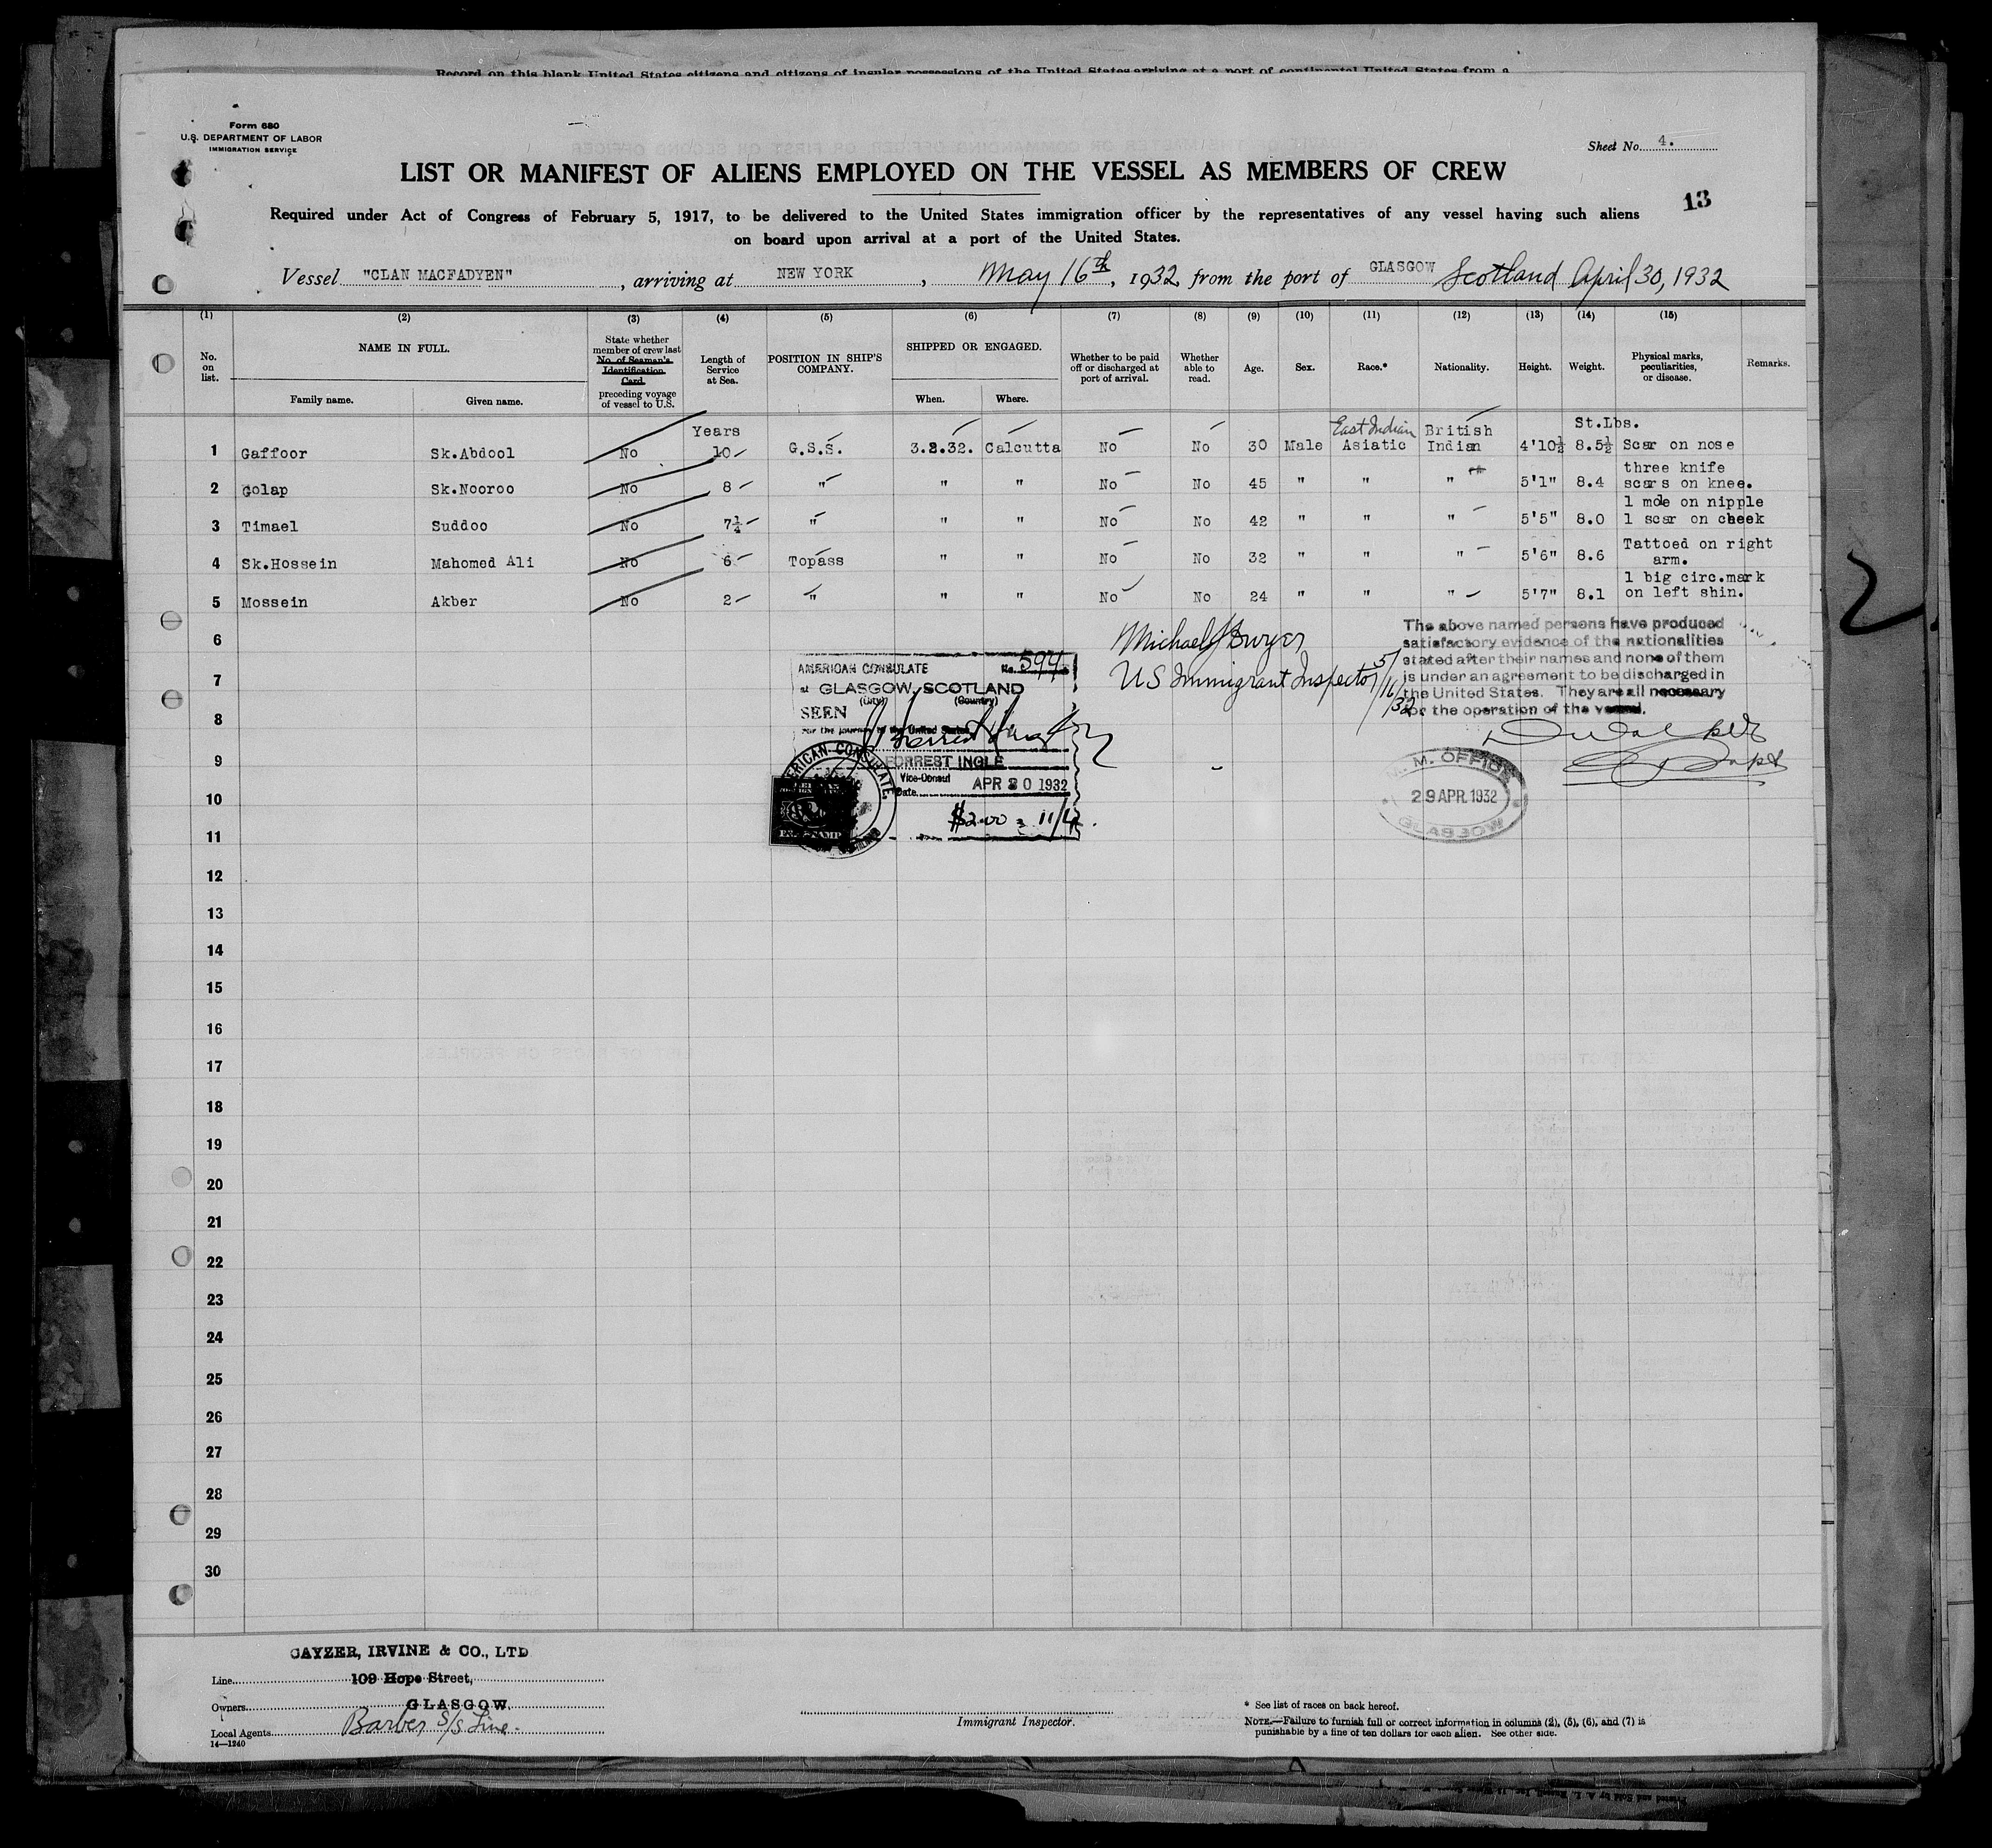 Record on this blank United States citizens and citizens of insular possessions of the United States arriving at a port of continental United States from a
Form 680
U.S. DEPARTMENT OF LABOR
IMMIGRATION SERVICE
Sheet No. 4.
LIST OR MANIFEST OF ALIENS EMPLOYED ON THE VESSEL AS MEMBERS OF CREW
13
Required under Act of Congress of February 5, 1917, to be delivered to the United States immigration officer by the representatives of any vessel having such aliens
on board upon arrival at a port of the United States.
Vessel "CLAN MACFADYEN", arriving at NEW YORK, May 16th, 1932, from the port of GLASGOW Scotland April 30, 1932
(1) (2) (3) (4) (5) (6) (7) (8) (9) (10) (11) (12) (13) (14) (15)
No. on list. NAME IN FULL. Family name. Given name. State whether member of crew last No. of Seaman's Identification Card. preceding voyage of vessel to U.S. Length of Service at Sea. POSITION IN SHIP'S COMPANY. SHIPPED OR ENGAGED. When. Where. Whether to be paid off or discharged at port of arrival. Whether able to read. Age. Sex. Race.* Nationality. Height. Weight. Physical marks, peculiarities, or disease. Remarks.
Years East Indian British St.Lbs.
1 Gaffoor Sk.Abdool No 10 G.S.S. 3.2.32. Calcutta No No 30 Male Asiatic Indian 4'10½ 8.5½ Scar on nose
three knife
2 Golap Sk.Nooroo No 8 " " " No No 45 " " " 5'1" 8.4 scars on knee.
1 mole on nipple
3 Timael Suddoo No 7¼ " " " No No 42 " " " 5'5" 8.0 1 scar on cheek
Tattoed on right
4 Sk.Hossein Mahomed Ali No 6 Topass " " No No 32 " " " 5'6" 8.6 arm.
1 big circ.mark
5 Mossein Akber No 2 " " " No No 24 " " " 5'7" 8.1 on left shin.
6
7
8
9
10
11
12
13
14
15
16
17
18
19
20
21
22
23
24
25
26
27
28
29
30
Michael J Dwyer
US Immigrant Inspector 5/16/32
The above named persons have produced
satisfactory evidence of the nationalities
stated after their names and none of them
is under an agreement to be discharged in
the United States. They are all necessary
for the operation of the vessel.
AMERICAN CONSULATE No. 594
at GLASGOW, SCOTLAND
(City) (Country)
SEEN
For the journey to the United States
FORREST INGLE
Vice-Consul
Date APR 30 1932
$2.00 = 11/4.
AMERICAN CONSULATE.
M. M. OFFICE
29 APR. 1932
GLASGOW
CAYZER, IRVINE & CO., LTD
Line 109 Hope Street,
Owners GLASGOW.
Local Agents Barber S/S Line.
14—1240
Immigrant Inspector.
* See list of races on back hereof.
NOTE.—Failure to furnish full or correct information in columns (2), (5), (6), and (7) is
punishable by a fine of ten dollars for each alien. See other side.